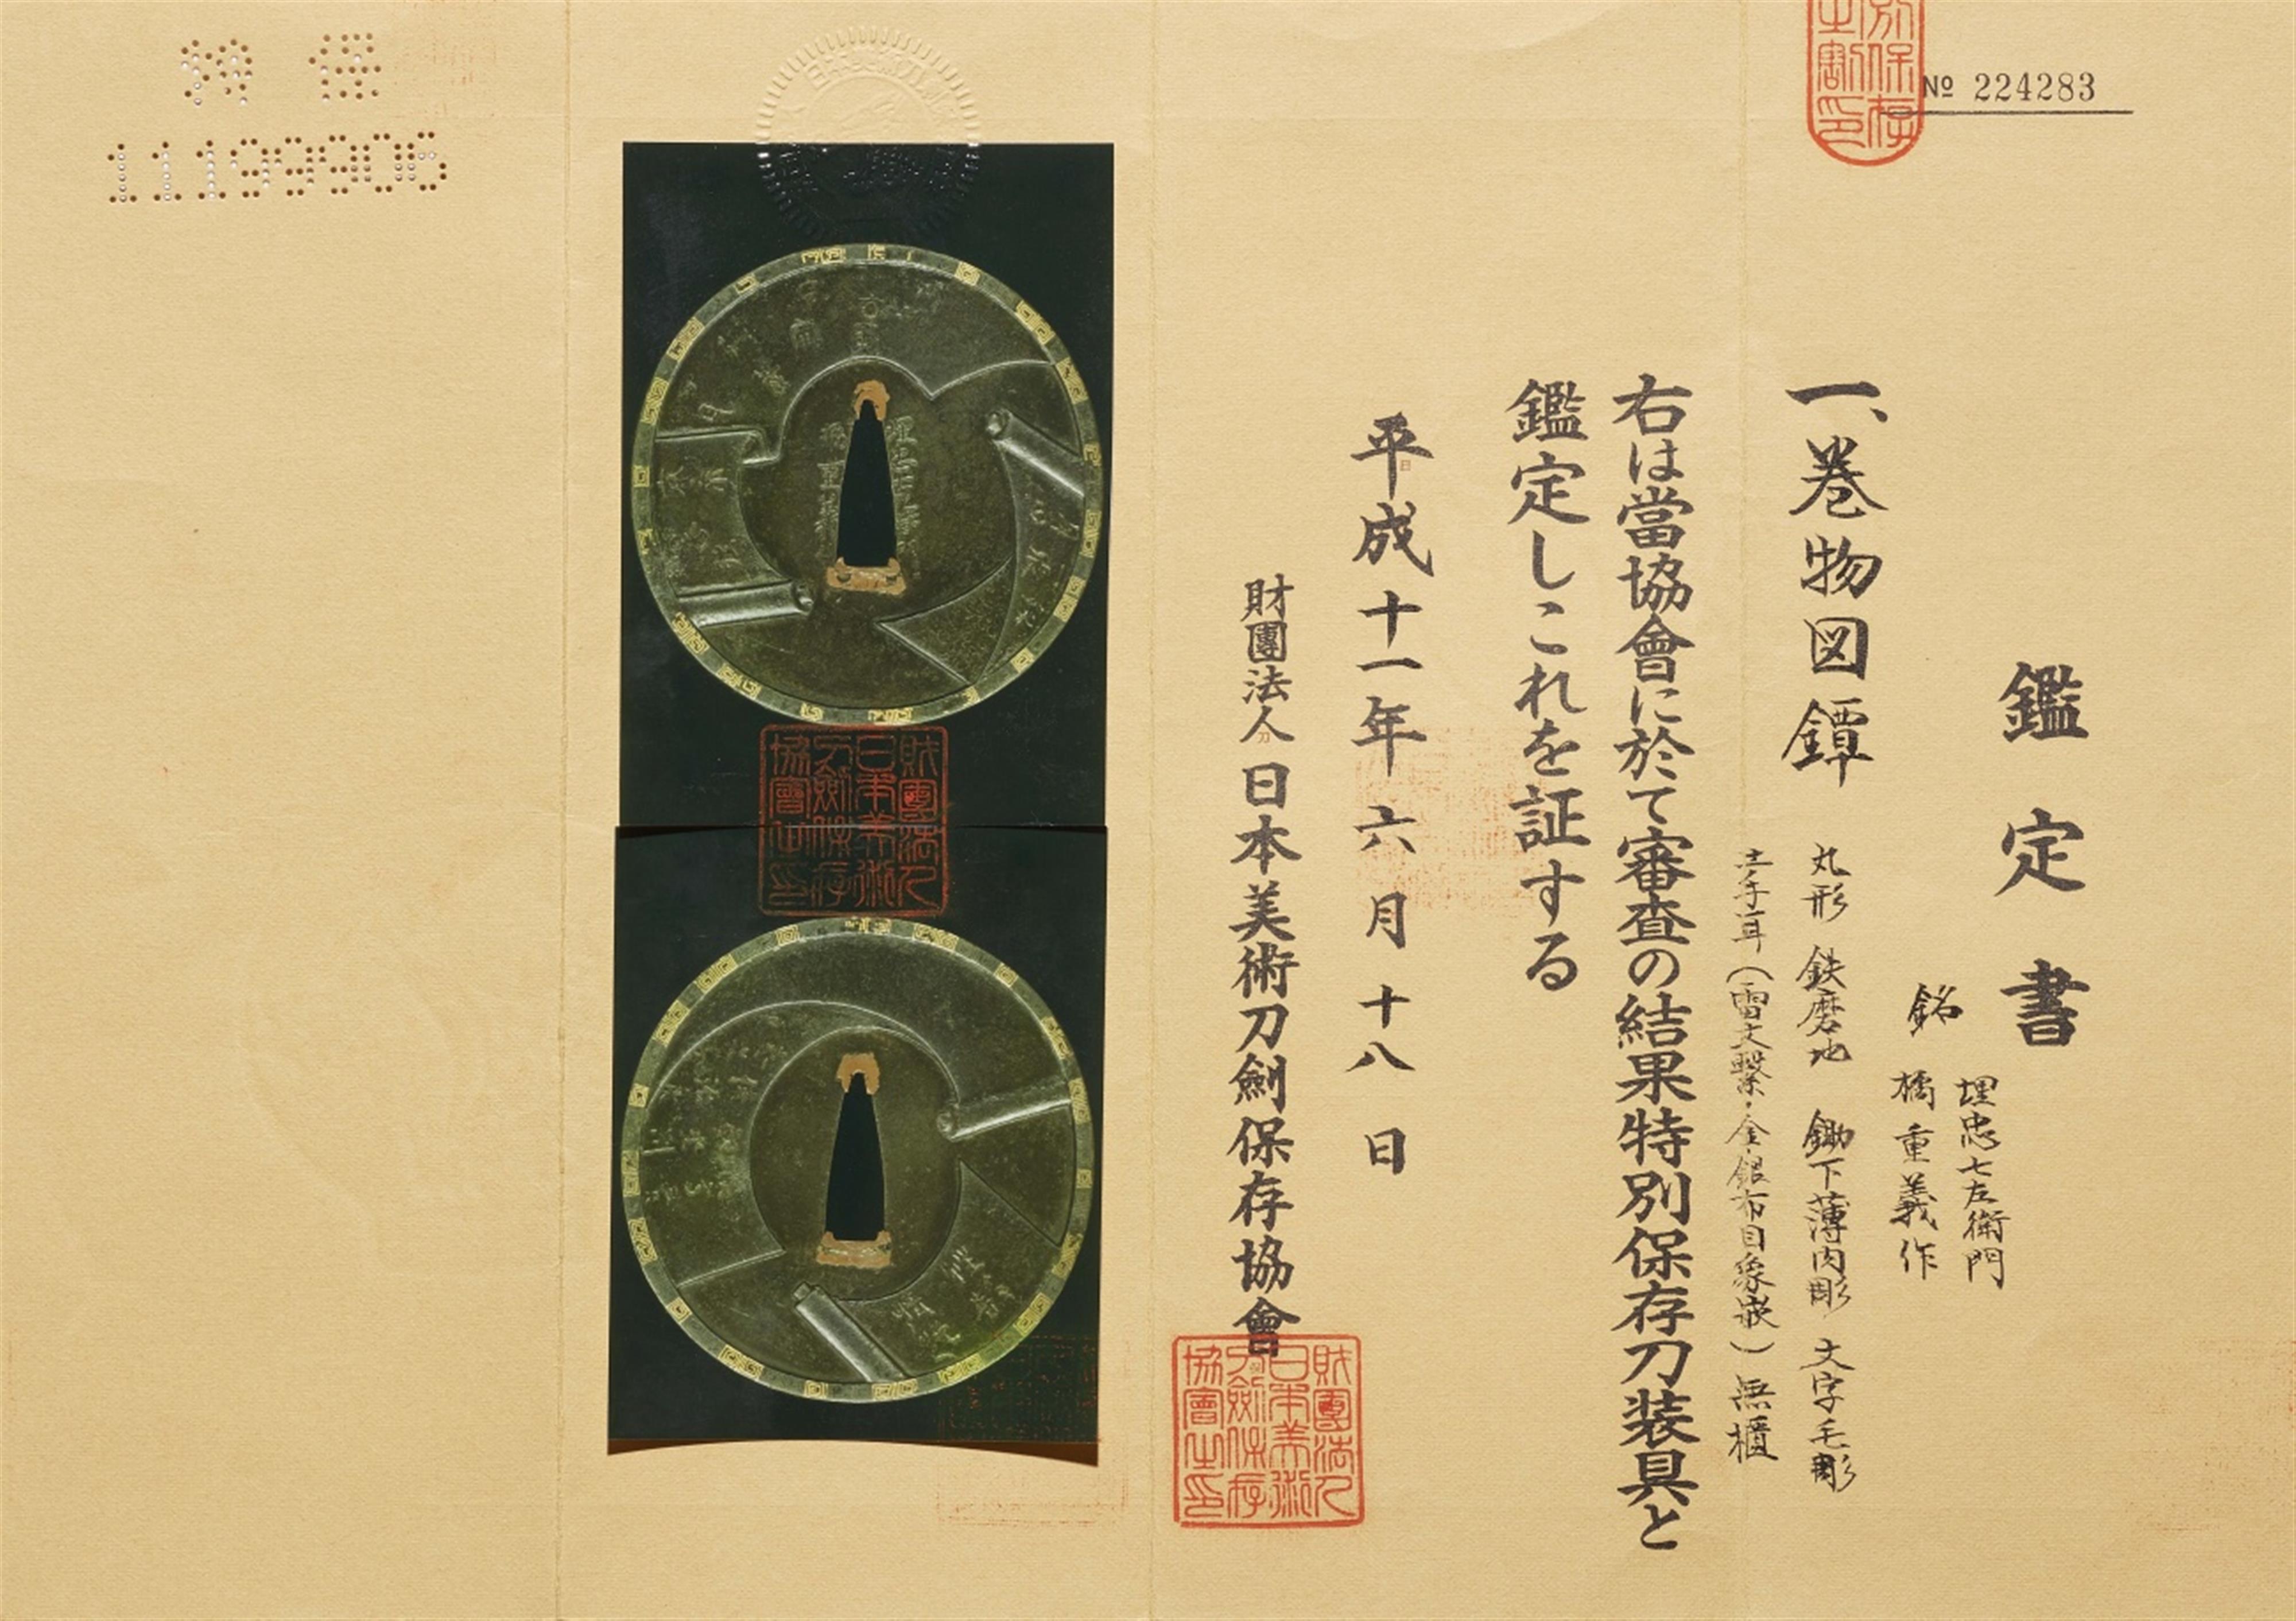 No 224283
鑑定書
銘 埋忠七左衛門
橘重義作
一、巻物図鐔 丸形 鉄磨地 鋤下薄肉彫 文字毛彫
土手耳(雷文繋・金銀布目象嵌)無櫃
右は當協會に於て審査の結果特別保存刀装具と
鑑定しこれを証する
平成十一年六月十八日
財團法人日本美術刀劍保存協會
財團法人
日本美術
刀劍保存
協會之印
財團法人
日本美術
刀劍保存
協會之印
11199906